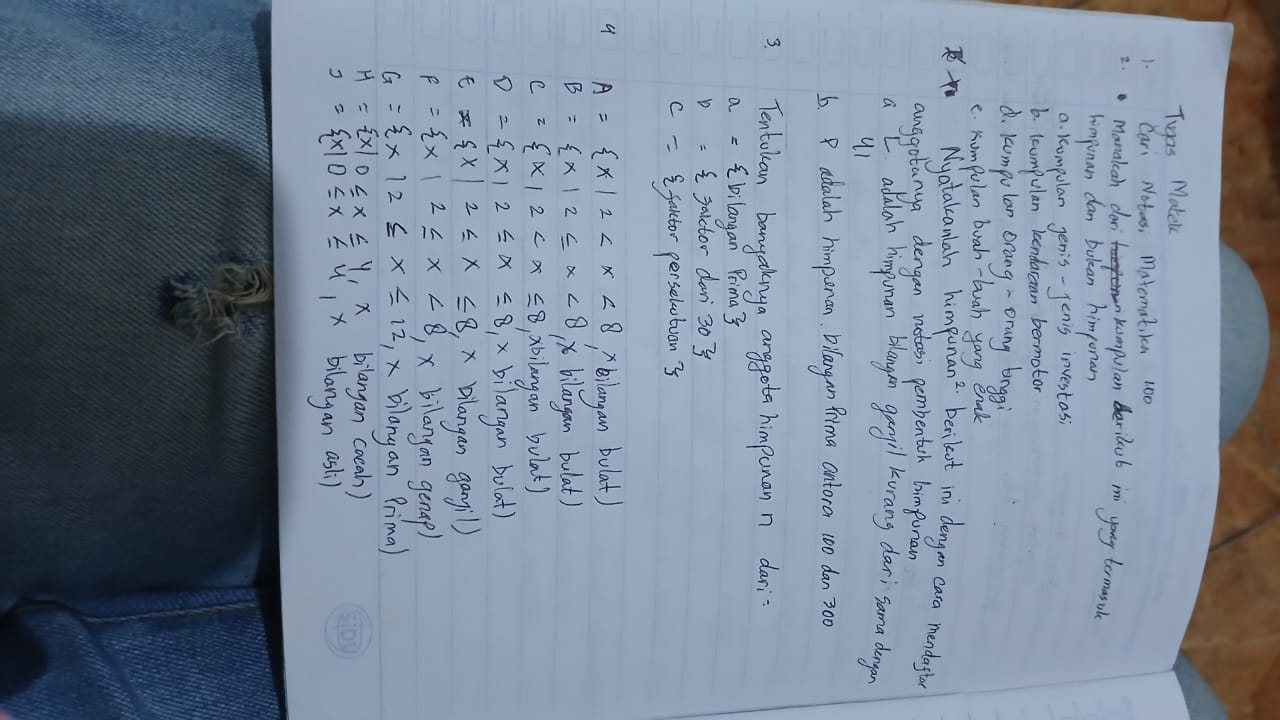 Tugas Matek
1. Cari Notasi Matematika 100
2. • Manakah dari kumpulan berikut ini yang termasuk
himpunan dan bukan himpunan
a. kumpulan jenis-jenis investasi
b. kumpulan kendaraan bermotor
d. kumpulan orang-orang tinggi
e. kumpulan buah-buah yang enak
Nyatakanlah himpunan² berikut ini dengan cara mendaftar
anggotanya dengan notasi pembentuk himpunan
a L. adalah himpunan bilangan ganjil kurang dari sama dengan
41
b. P adalah himpunan. bilangan Prima antara 100 dan 300
3. Tentukan banyaknya anggota himpunan n dari =
a = {bilangan Prima}
b = {faktor dari 30}
c = {faktor persekutuan}
4 A = {x | 2 < x < 8, x bilangan bulat)
B = {x | 2 ≤ x < 8, x bilangan bulat)
C = {x | 2 < x ≤ 8, x bilangan bulat)
D = {x | 2 ≤ x ≤ 8, x bilangan bulat)
E = {x | 2 ≤ x ≤ 8, x bilangan ganjil)
F = {x | 2 ≤ x < 8, x bilangan genap)
G = {x | 2 ≤ x ≤ 12, x bilangan Prima)
H = {x | 0 ≤ x ≤ 4, x bilangan cacah)
J = {x | 0 ≤ x ≤ 4, x bilangan asli)
SIDU